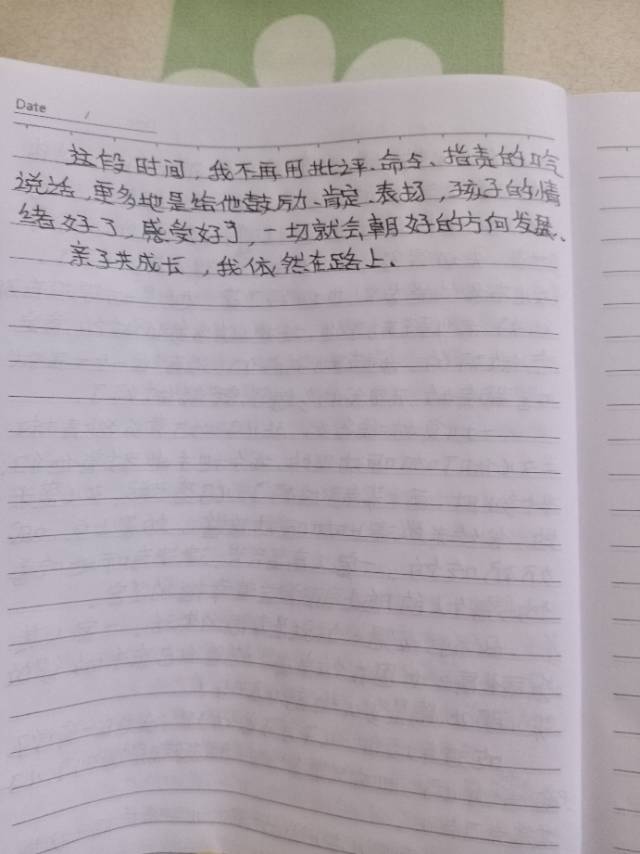 Date /
这段时间，我不再用批评、命令、指责的口气
说话，更多地是给他鼓励、肯定、表扬，孩子的情
绪好了，感受好了，一切就会朝好的方向发展、
亲子共成长，我依然在路上、